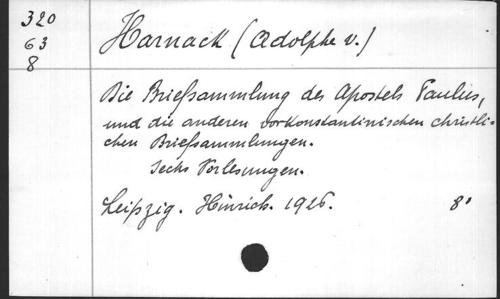 320
63
8
Harnack (Adolphe v.)
Die Briefsammlung des Apostels Paulus,
und die anderen vorkonstantinischen christli-
chen Briefsammlungen.
Sechs Vorlesungen.
Leipzig. Hinrich. 1926. 8°